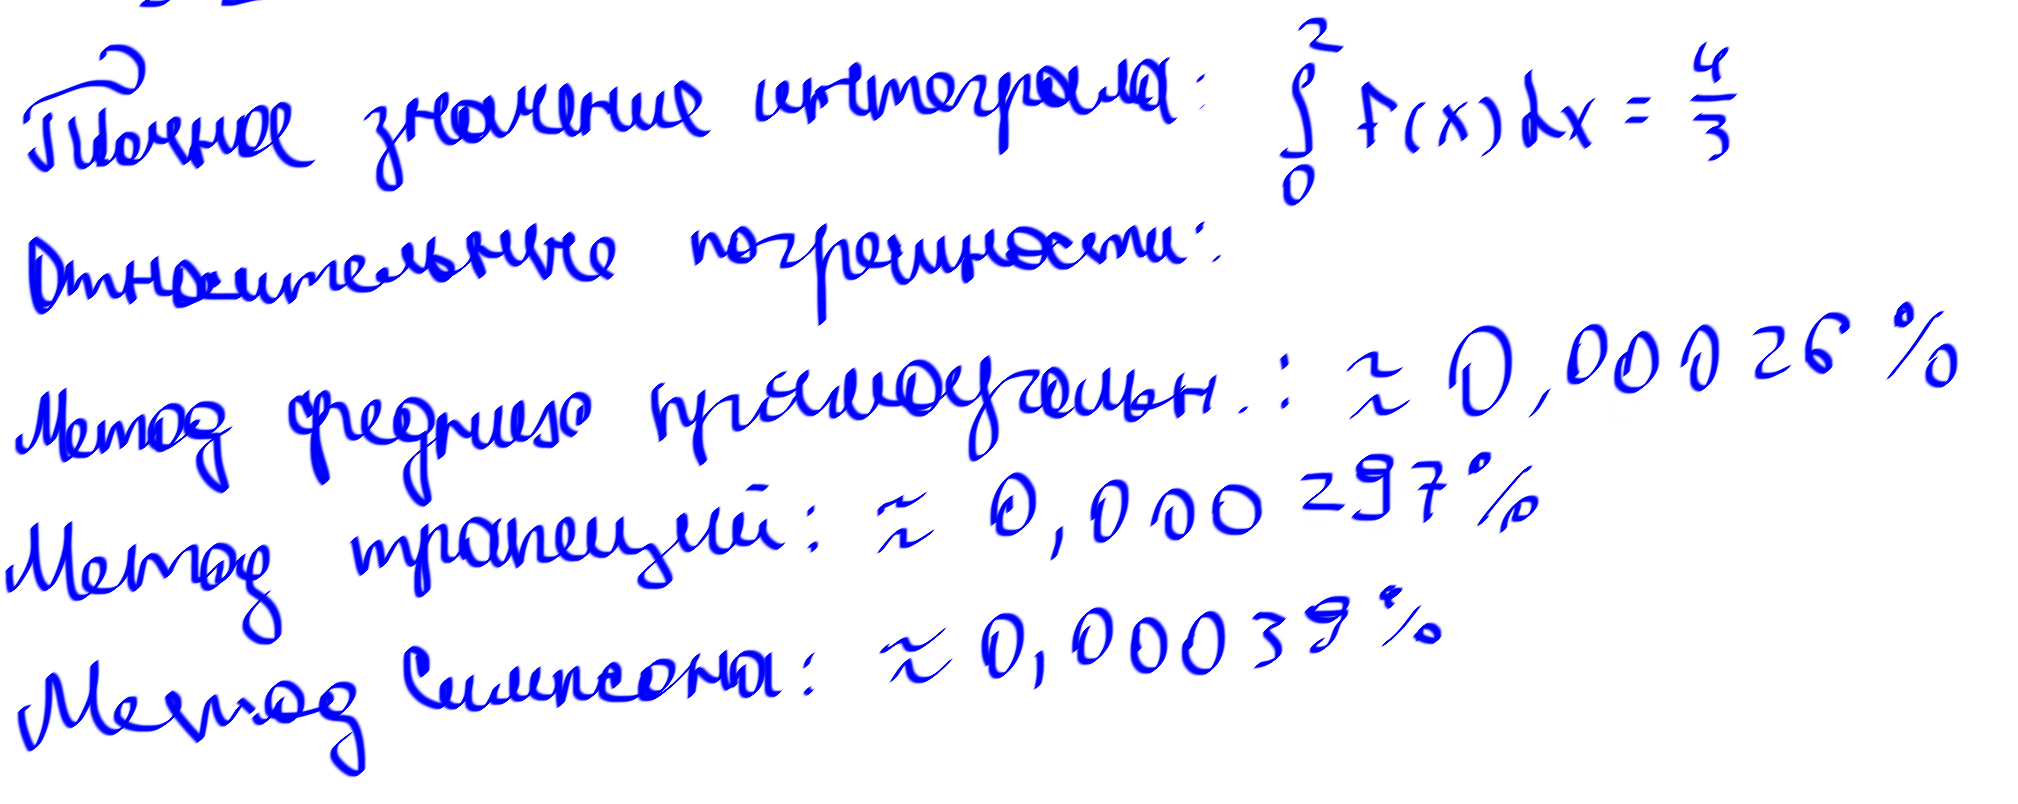 Точное значение интеграла: ∫₀² f(x)dx = 4/3
Относительные погрешности:
Метод среднего прямоугольн.: ≈ 0,00026%
Метод трапеций: ≈ 0,000297%
Метод Симпсона: ≈ 0,00039%